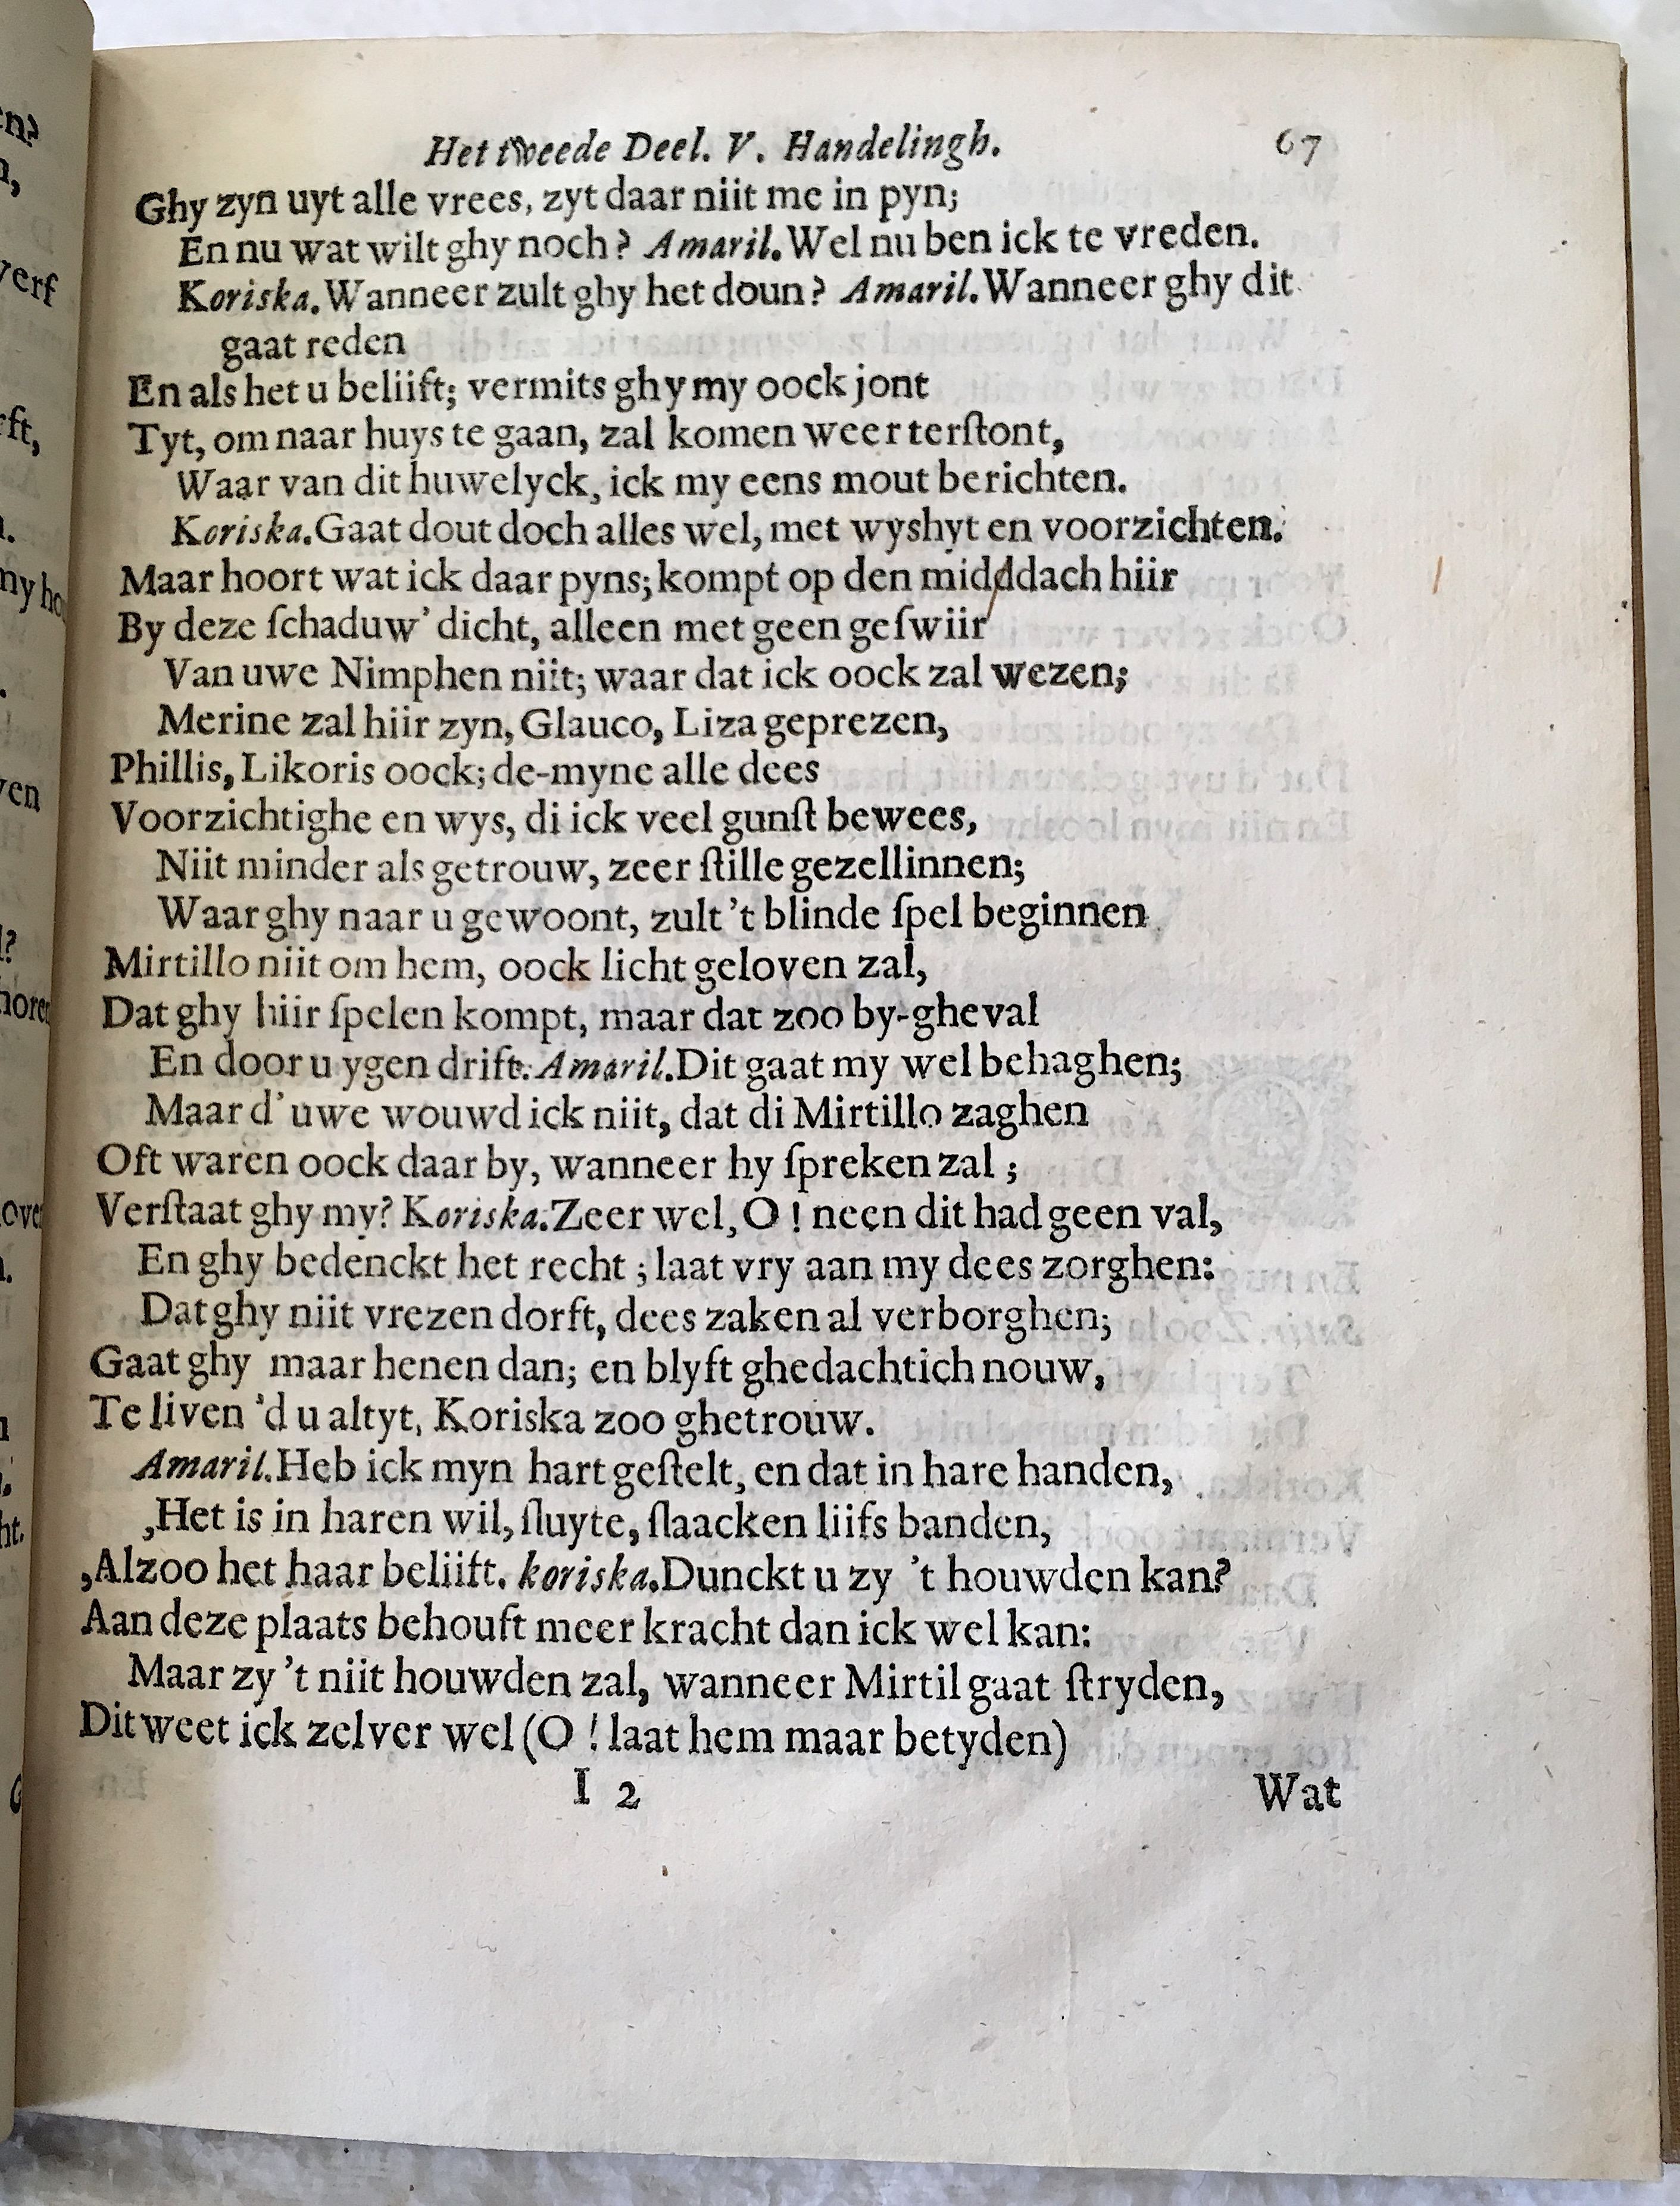 Het tweede Deel. V. Handelingh. 67
Ghy zyn uyt alle vrees, zyt daar niit me in pyn;
En nu wat wilt ghy noch? Amaril. Wel nu ben ick te vreden.
Koriska. Wanneer zult ghy het doun? Amaril. Wanneer ghy dit
gaat reden
En als het u beliift; vermits ghy my oock jont
Tyt, om naar huys te gaan, zal komen weer terſtont,
Waar van dit huwelyck, ick my eens mout berichten.
Koriska. Gaat dout doch alles wel, met wyshyt en voorzichten.
Maar hoort wat ick daar pyns; kompt op den midddach hiir
By deze ſchaduw' dicht, alleen met geen geſwiir
Van uwe Nimphen niit; waar dat ick oock zal wezen;
Merine zal hiir zyn, Glauco, Liza geprezen,
Phillis, Likoris oock; de-myne alle dees
Voorzichtighe en wys, di ick veel gunſt bewees,
Niit minder als getrouw, zeer ſtille gezellinnen;
Waar ghy naar u gewoont, zult 't blinde ſpel beginnen
Mirtillo niit om hem, oock licht geloven zal,
Dat ghy hiir ſpelen kompt, maar dat zoo by-gheval
En door u ygen drift. Amaril. Dit gaat my wel behaghen;
Maar d'uwe wouwd ick niit, dat di Mirtillo zaghen
Oft waren oock daar by, wanneer hy ſpreken zal;
Verſtaat ghy my? Koriska. Zeer wel, O! neen dit had geen val,
En ghy bedenckt het recht; laat vry aan my dees zorghen:
Dat ghy niit vrezen dorft, dees zaken al verborghen;
Gaat ghy maar henen dan; en blyft ghedachtich nouw,
Te liven 'd u altyt, Koriska zoo ghetrouw.
Amaril. Heb ick myn hart geſtelt, en dat in hare handen,
,Het is in haren wil, ſluyte, ſlaacken liifs banden,
,Alzoo het haar beliift. koriska. Dunckt u zy 't houwden kan?
Aan deze plaats behouft meer kracht dan ick wel kan:
Maar zy 't niit houwden zal, wanneer Mirtil gaat ſtryden,
Dit weet ick zelver wel (O! laat hem maar betyden)
I 2 Wat